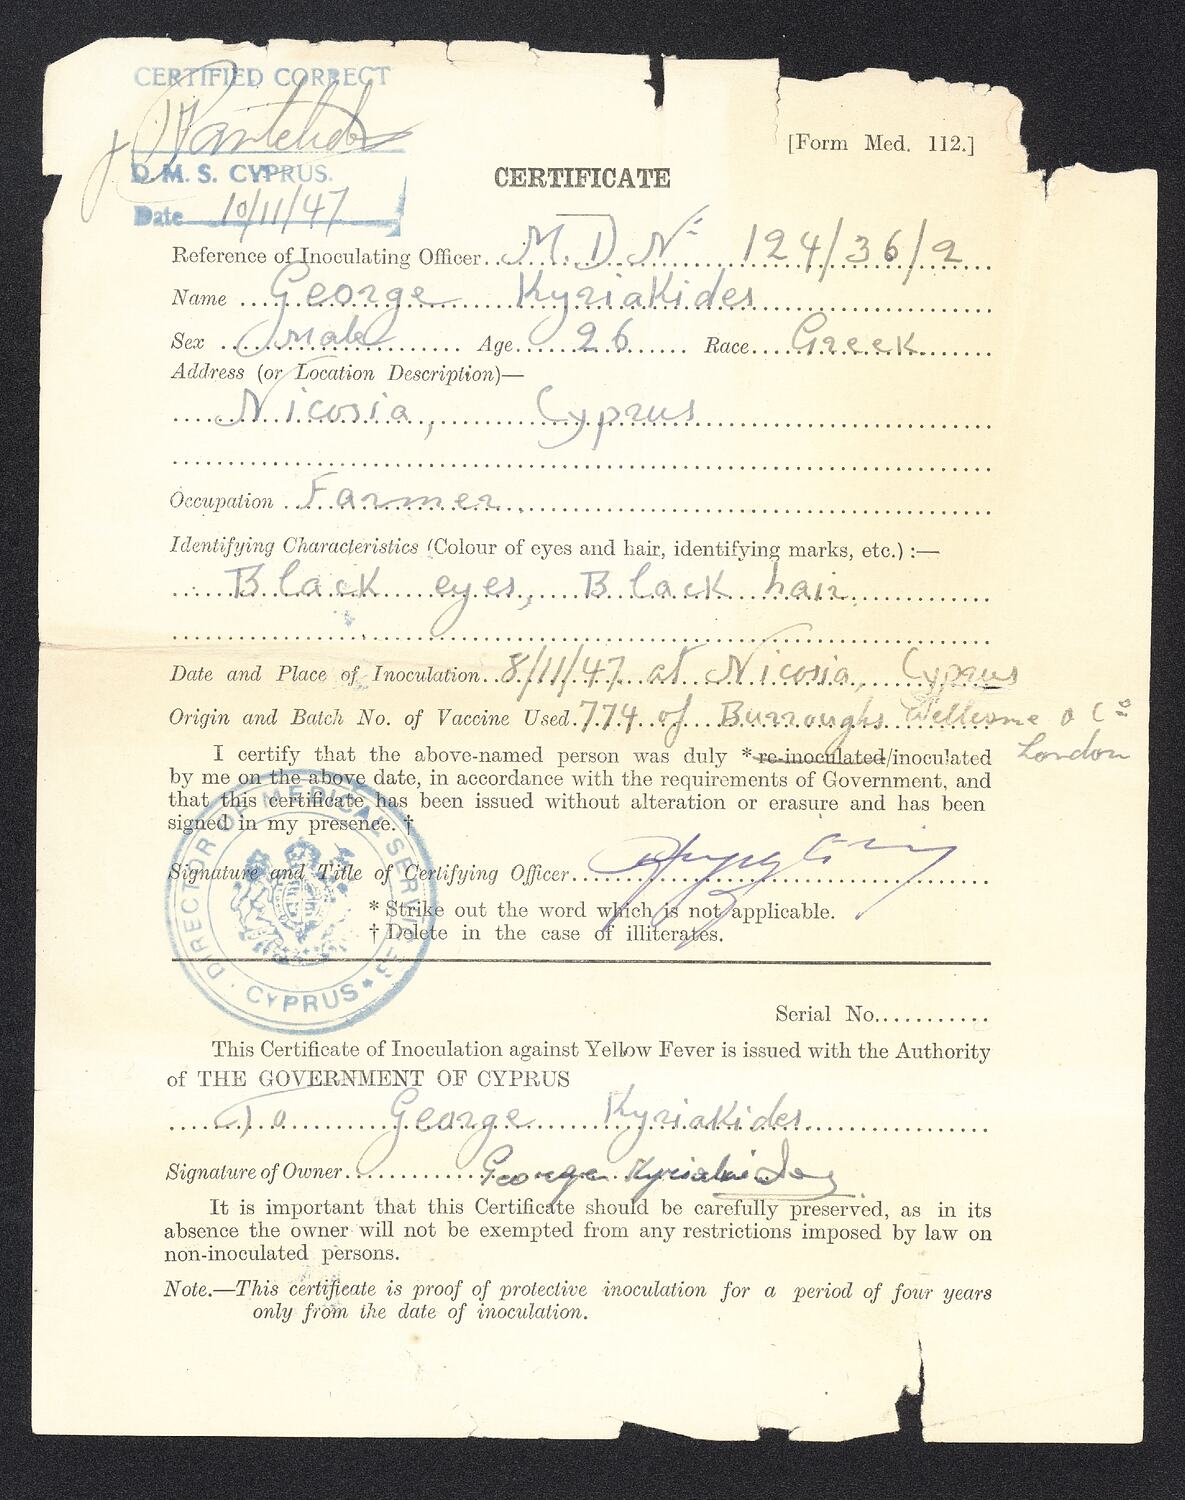 CERTIFIED CORRECT
D. M. S. CYPRUS.
Date 10/11/47
[Form Med. 112.]
CERTIFICATE
Reference of Inoculating Officer.. M.D Nº 124/36/2
Name George Kyriakides
Sex Male Age 26 Race Greek
Address (or Location Description)—
Nicosia, Cyprus
Occupation Farmer.
Identifying Characteristics (Colour of eyes and hair, identifying marks, etc.) :—
Black eyes, Black hair.
Date and Place of Inoculation.. 8/11/47 at Nicosia, Cyprus
Origin and Batch No. of Vaccine Used. 774 of Burroughs Wellcome & Cº
London
I certify that the above-named person was duly * re-inoculated/inoculated
by me on the above date, in accordance with the requirements of Government, and
that this certificate has been issued without alteration or erasure and has been
signed in my presence. †
Signature and Title of Certifying Officer
* Strike out the word which is not applicable.
† Delete in the case of illiterates.
DIRECTOR OF MEDICAL SERVICES
CYPRUS
Serial No.
This Certificate of Inoculation against Yellow Fever is issued with the Authority
of THE GOVERNMENT OF CYPRUS
To George Kyriakides
Signature of Owner George Kyriakides
It is important that this Certificate should be carefully preserved, as in its
absence the owner will not be exempted from any restrictions imposed by law on
non-inoculated persons.
Note.—This certificate is proof of protective inoculation for a period of four years
only from the date of inoculation.